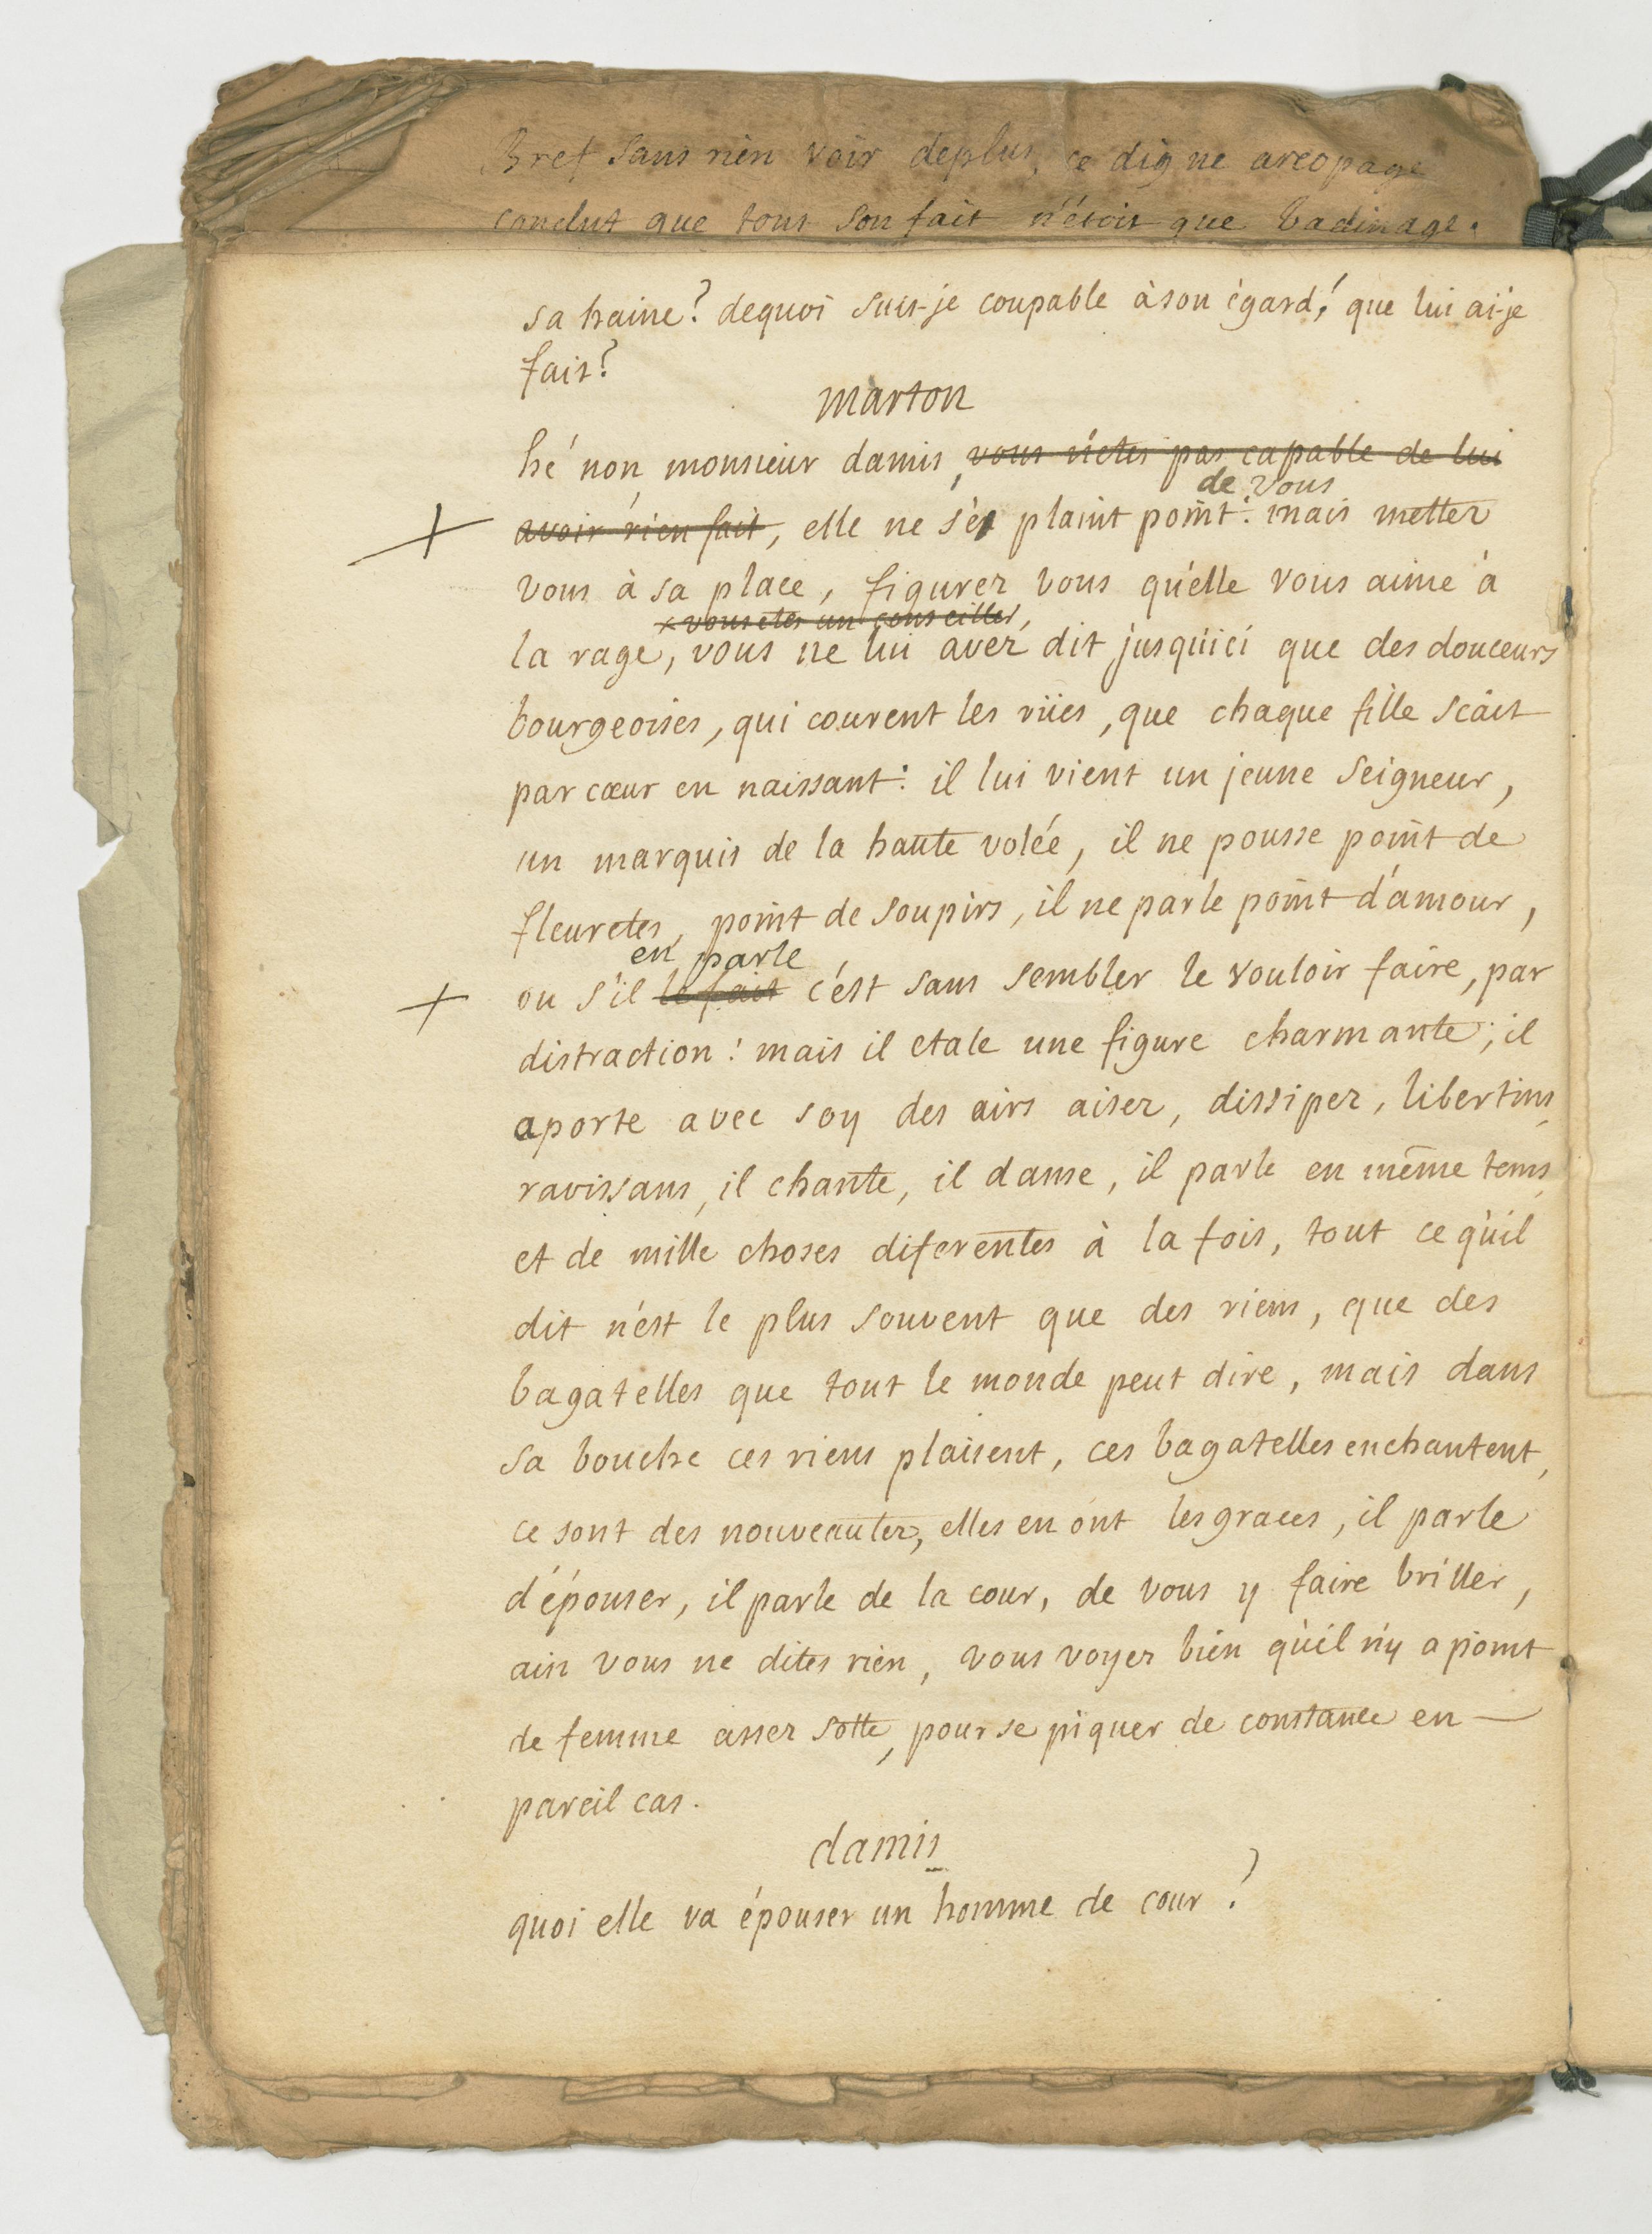 Bref sans rien voir deplus, ce digne areopage
conclut que tout son fait n'étoit que badinage.
sa haine? dequoi suis-je coupable à son égard! que lui ai-je
fait?
marton
hé non monsieur damis, vous n'étes pas capable de lui
de vous
+ avoir rien fait, elle ne s'e plaint point: mais mettez
vous à sa place, figurez vous qu'elle vous aime à
x vous etes un conseiller,
la rage, vous ne lui avez dit jusqu'ici que des douceurs
bourgeoises, qui courent les rües, que chaque fille scait
par cœur en naissant: il lui vient un jeune seigneur,
un marquis de la haute volée, il ne pousse point de
fleuretes, point de soupirs, il ne parle point d'amour,
en parle
+ ou s'il le fait c'ést sans sembler le vouloir faire, par
distraction! mais il etale une figure charmante; il
aporte avec soy des airs aisez, dissipez, libertins,
ravissans, il chante, il danse, il parle en même tems,
et de mille choses diferentes à la fois, tout ce qu'il
dit n'ést le plus souvent que des riens, que des
bagatelles que tout le monde peut dire, mais dans
sa bouche ces riens plaisent, ces bagatelles enchantent,
ce sont des nouveautez, elles en ont les graces, il parle
d'épouser, il parle de la cour, de vous y faire briller,
ain vous ne dites rien, vous voyez bien qu'il n'y a point
de femme assez sotte, pour se piquer de constance en —
pareil cas.
damis
quoi elle va épouser un homme de cour?